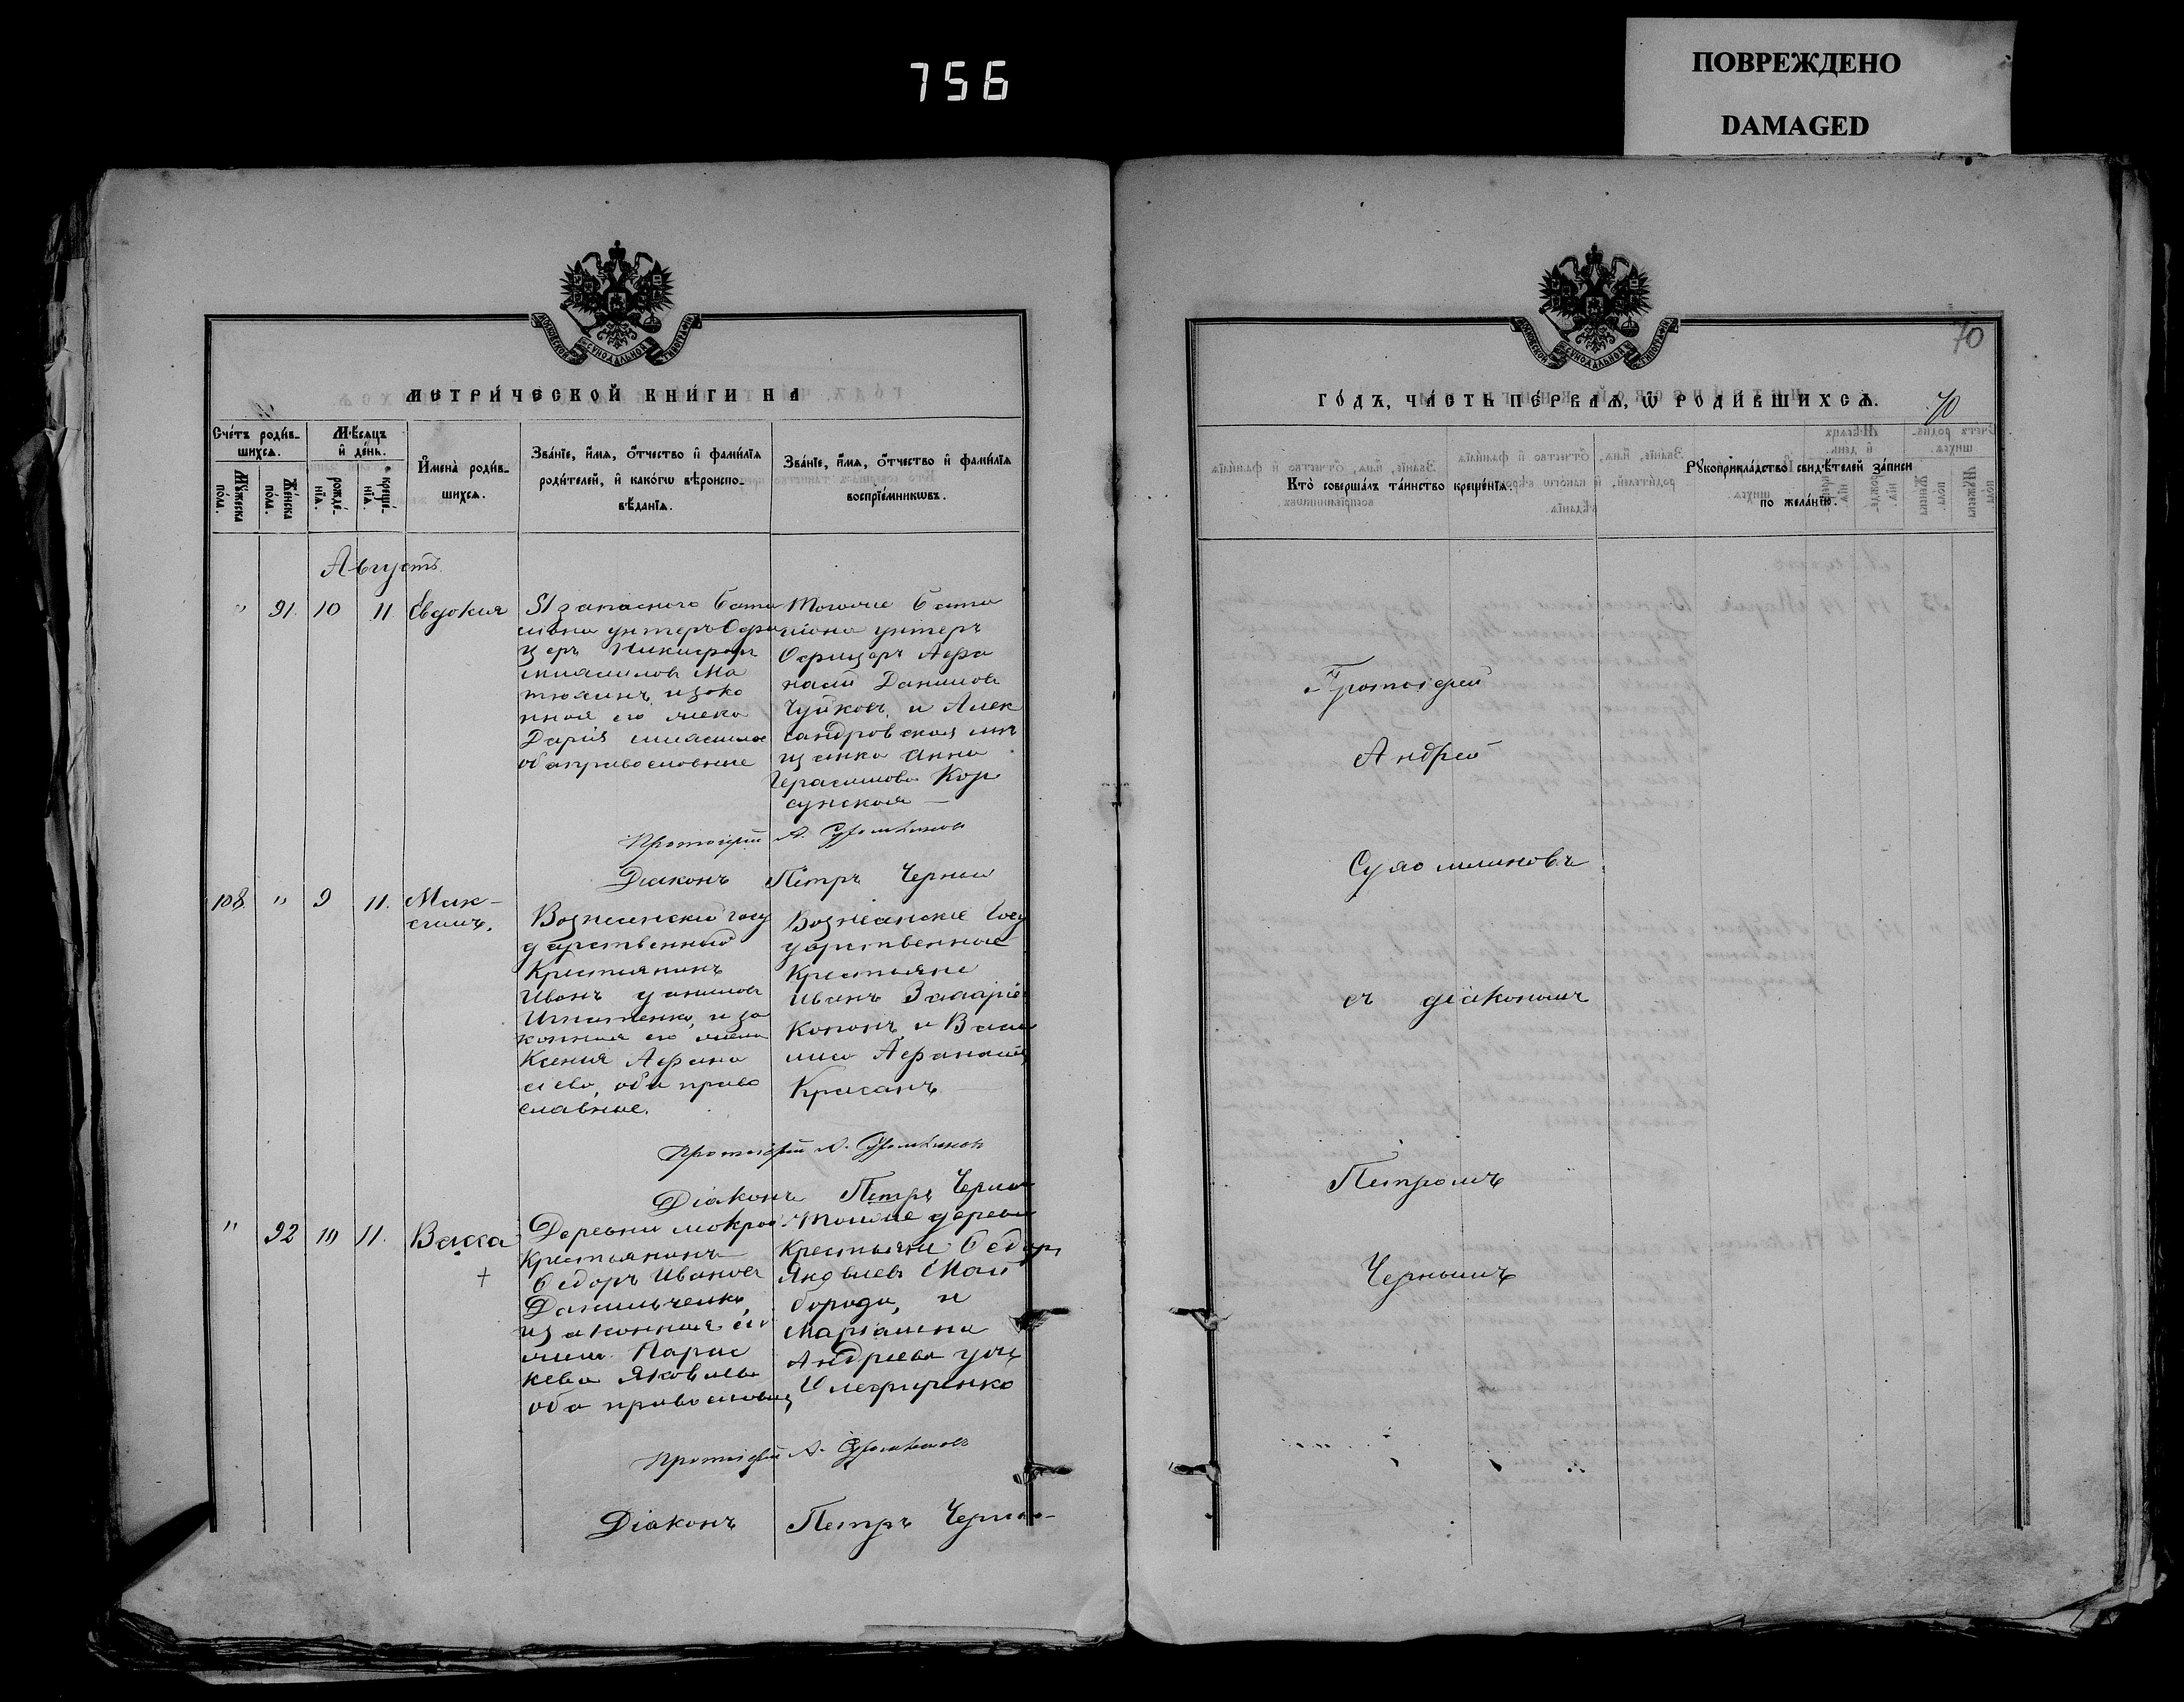 756
ПОВРЕЖДЕНО
DAMAGED
МОСКОВСКОЙ СѴНОДАЛЬНОЙ ТИПОГРАФІИ
МЕТРИ́ЧЕСКОЙ КНИ́ГИ НА
Сче́тъ роди́в-
шихсѧ.
Мѣ́сѧцъ
и҆ де́нь.
Мꙋ́жеска
по́ла.
Же́нска
по́ла.
рожде́-
нїѧ.
креще́-
нїѧ.
И҆мена̀ роди́в-
шихсѧ.
Зва́нїе, и҆́мѧ, ѻ҆́тчество и҆ фами́лїѧ
роди́телей, и҆ како́гѡ вѣроиспо-
вѣ́данїѧ.
Зва́нїе, и҆́мѧ, ѻ҆́тчество и҆ фами́лїѧ
воспрїе́мникѡвъ.
Августъ
" 91. 10 11. Евдокия
51 запаснаго бата
ліона унтеръ Офи
церъ Никифоръ
Ма
тюхинъ, и зако
нная его жена
Дарія
оба православные
Тогоже бата
ліона унтеръ
Офицеръ Афа
насій Даниловъ
Чуйковъ, и Алек
сандровская мѣ
щанка Анна
Герасимова Кор
сунская —
Протоіерей А. Сухомлиновъ
Діаконъ Петръ Черный
108. " 9 11. Мак-
симъ.
Вознесенскій госу
дарственный
Крестьянинъ
Иванъ Даниловъ
Игнатенко, и за
конная его жена
Ксения Афана
сіева, оба право
славные.
Вознесенскіе Госу
дарственные
Крестьяне
Иванъ
Кононъ, и Васи
лиса Афанасіева
Красанъ
Протоіерей А. Сухомлиновъ
Діаконъ Петръ Черный
" 92 10 11. Васса
+
Деревни Мокрой
Крестьянинъ
Ѳедоръ Ивановъ
Данильченко,
и законная его
жена Парас
кева Яковлева
оба православны
Тойже деревни
Крестьяне Ѳедоръ
Яковлевъ Май
борода, и
Маріамна
Андреева дочь
Протоіерей А. Сухомлиновъ
Діаконъ Петръ Черный
МОСКОВСКОЙ СѴНОДАЛЬНОЙ ТИПОГРАФІИ
70
ГО́ДЪ, ЧА́СТЬ ПЕ́РВАѦ, Ѡ҆ РОДИ́ВШИХСѦ.
70
Кто̀ соверша́лъ та́инство креще́нїѧ.
Рꙋкоприкла́дство свидѣ́телей за́писи
по жела́нїю.
Протоіерей
Андрей
Сухомлиновъ
съ діакономъ
Петромъ
Чернымъ